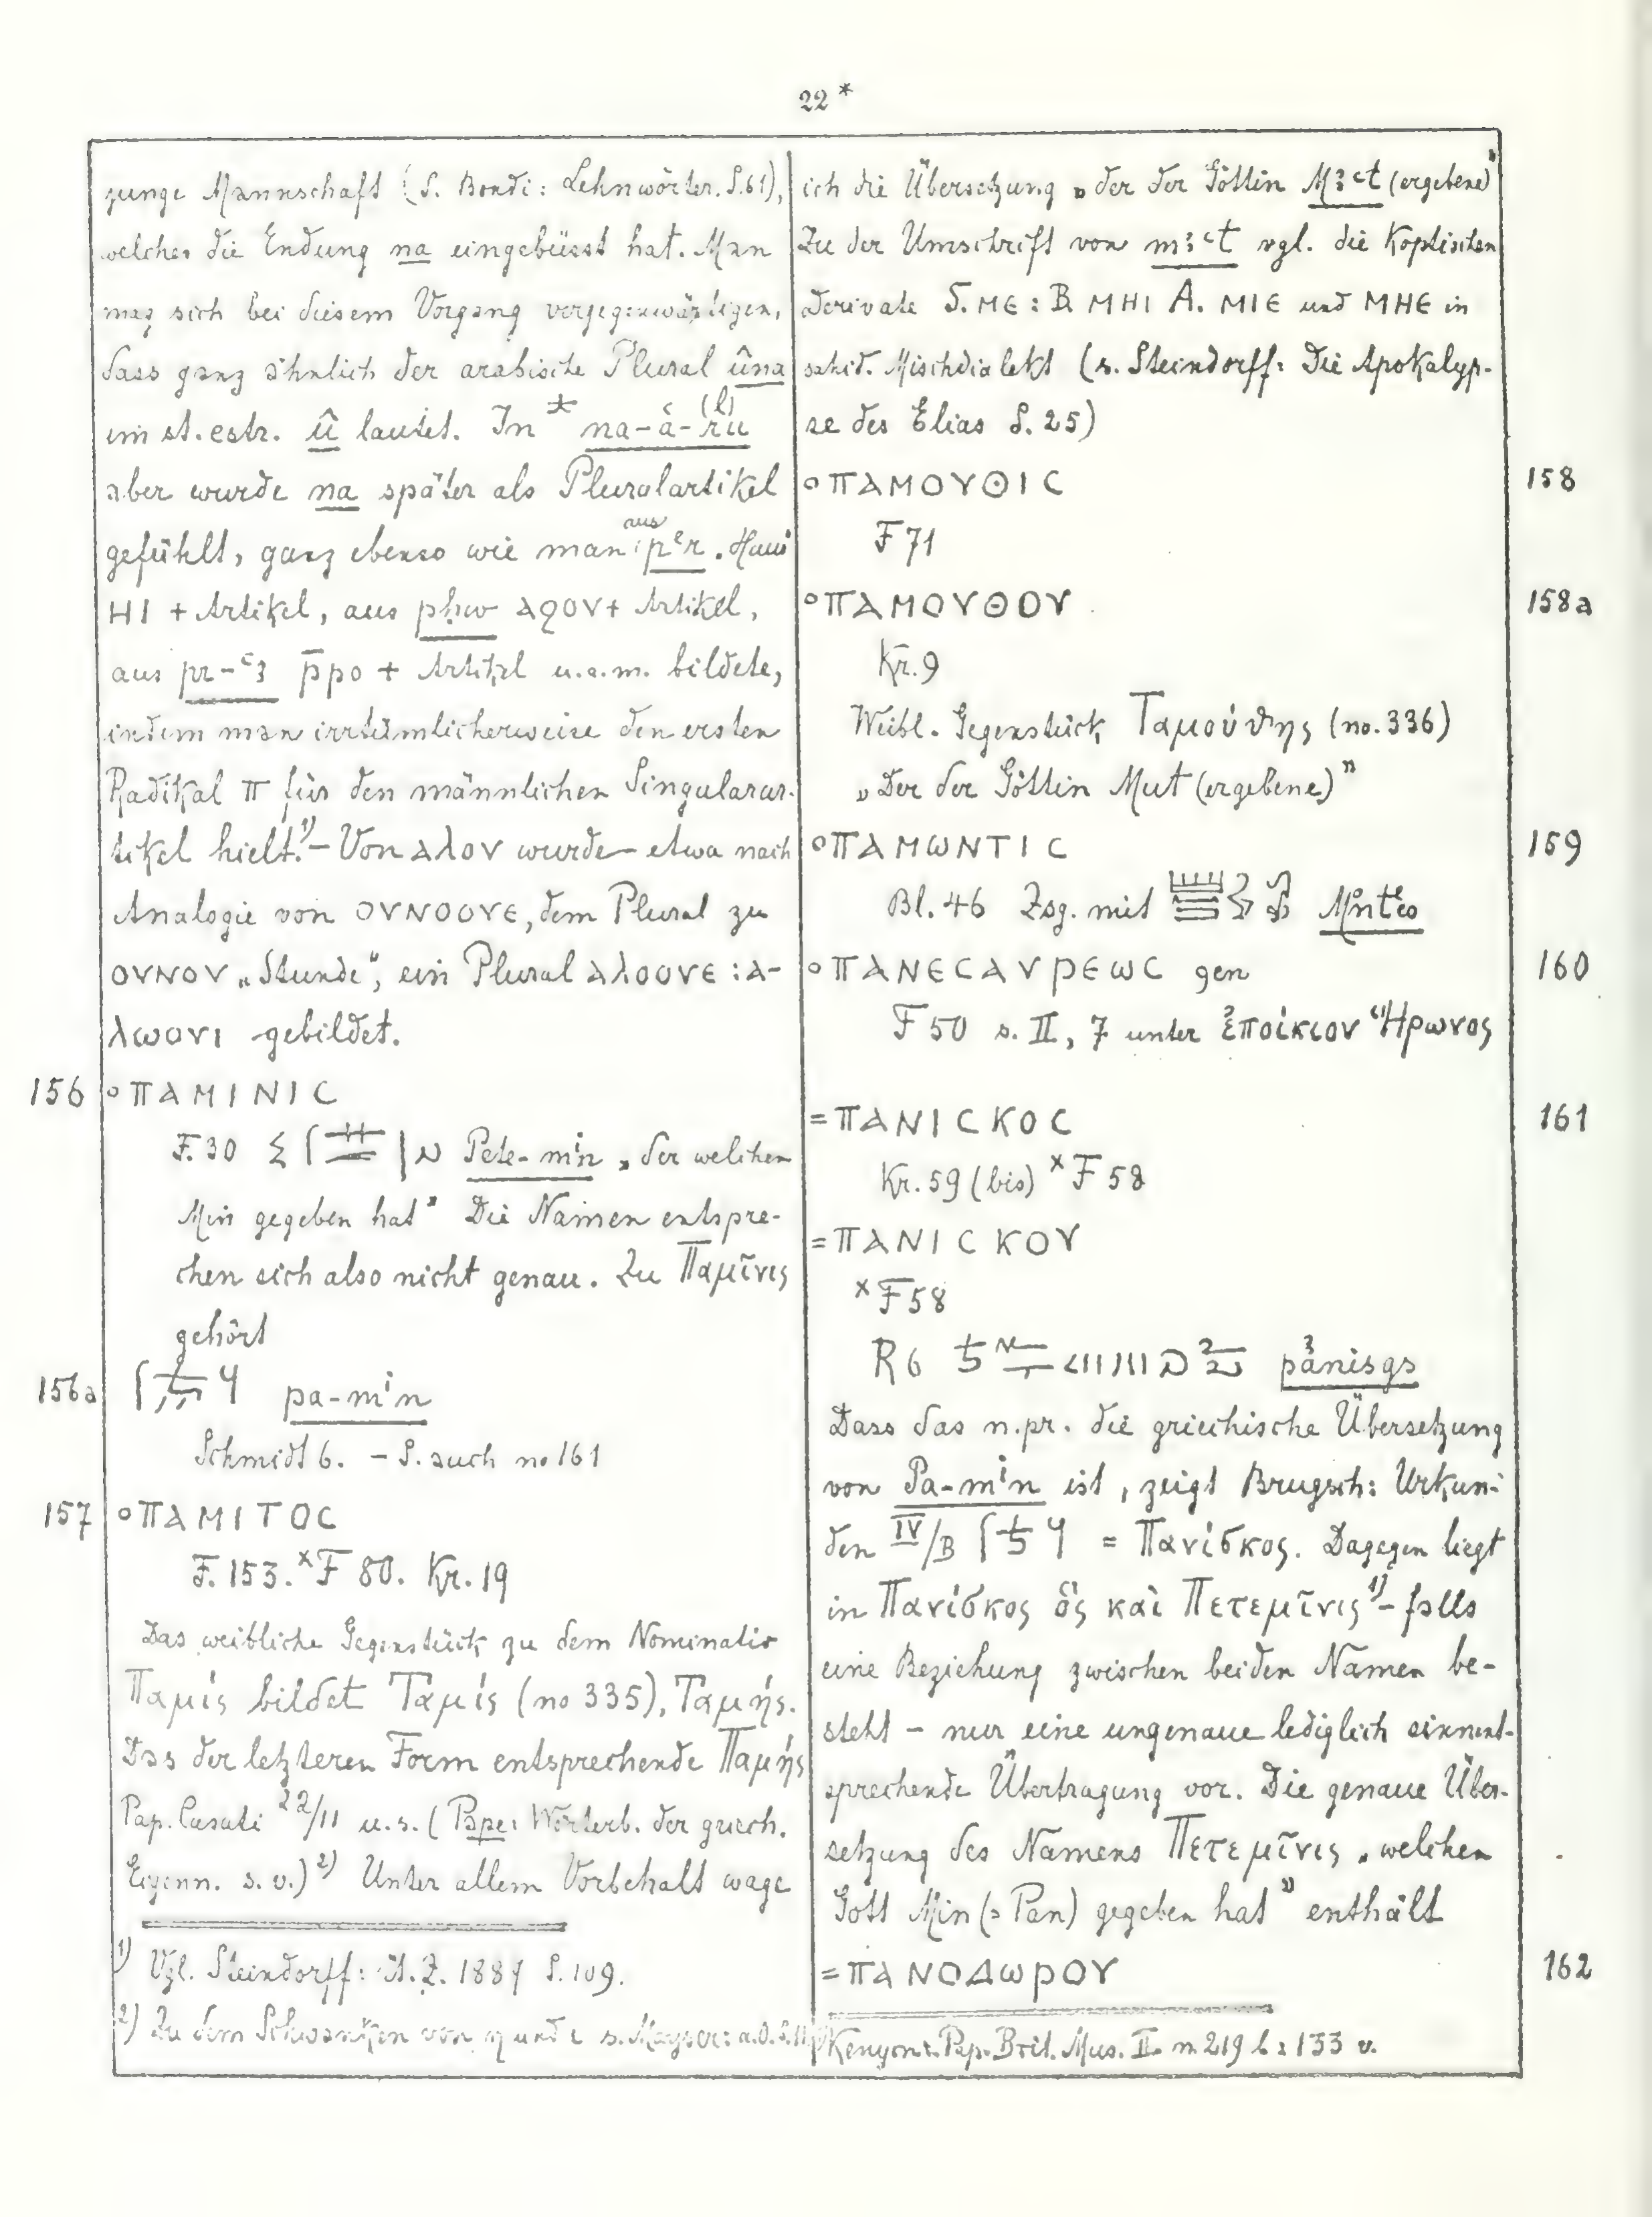 22*
junge Mannschaft (S. Bondi: Lehnwörter. S. 61),
welches die Endung na eingebüsst hat. Man
mag sich bei diesem Vorgang vergegenwärtigen,
dass ganz ähnlich der arabische Plural ûna
im st. cstr. û lautet. In * na-ʿa-ru (l)
aber wurde na später als Pluralartikel
gefühlt, ganz ebenso wie man aus pᵉr „Haus
ΗΙ + Artikel, aus pḥw ⲁϩⲟⲩ + Artikel,
aus pr-ʿꜣ p̄ⲣⲟ + Artikel u.a.m. bildete,
indem man irrtümlicherweise den ersten
Radikal π für den männlichen Singularar-
tikel hielt.¹) – Von ⲁⲗⲟⲩ wurde – etwa nach
Analogie von ⲟⲩⲛⲟⲟⲩⲉ, dem Plural zu
ⲟⲩⲛⲟⲩ „Stunde“, ein Plural ⲁⲗⲟⲟⲩⲉ : ⲁ-
ⲗⲱⲟⲩⲓ gebildet.
156 °ΠΑΜΙΝΙC
F. 30 Pete-mⁱn „der welchen
Min gegeben hat“ Die Namen entspre-
chen sich also nicht genau. Zu Παμῖνις
gehört
156a pa-mⁱn
Schmidt 6. – S. auch no 161
157 °ΠΑΜΙΤΟC
F. 153. ˣF 80. Kr. 19
Das weibliche Gegenstück zu dem Nominativ
Παμίς bildet Ταμίς (no 335), Ταμής.
Das der letzteren Form entsprechende Παμής
Pap. Casati 22/11 u. s. (Pape: Wörterb. der griech.
Eigenn. s. v.)²) Unter allem Vorbehalt wage
¹) Vgl. Steindorff: Ä. Z. 1889 S. 109.
²) Zu dem Schwanken von η und ι s. Mayser: a.O. S.
ich die Übersetzung „der der Göttin Mꜣʿt (ergebene)“
Zu der Umschrift von mꜣʿt vgl. die Koptischen
Derivate S. ⲙⲉ : B. ⲙⲏⲓ A. ⲙⲓⲉ und ⲙⲏⲉ in
sahid. Mischdialekt (s. Steindorff: Die Apokalyp-
se des Elias S. 25)
°ΠΑΜΟΥΘΙC 158
F 71
°ΠΑΜΟΥΘΟΥ 158a
Kr. 9
Weibl. Gegenstück Ταμούθης (no. 336)
„Der der Göttin Mut (ergebene)“
°ΠΑΜωΝΤΙC 159
Bl. 46 Zsg. mit
°ΠΑΝΕCΑΥΡΕωC gen 160
F 50 s. II, 7 unter ἐποίκιον Ἥρωνος
=ΠΑΝΙCΚΟC 161
Kr. 59 (bis) ˣF 58
=ΠΑΝΙCΚΟΥ
ˣF 58
R 6 pꜣnisgs
Dass das n. pr. die griechische Übersetzung
von Pa-mⁱn ist, zeigt Brugsch: Urkun-
den IV/B = Πανίσκος. Dagegen liegt
in Πανίσκος ὅς καὶ Πετεμῖνις¹) – falls
eine Beziehung zwischen beiden Namen be-
steht – nur eine ungenaue lediglich sinnent-
sprechende Übertragung vor. Die genaue Über-
setzung des Namens Πετεμῖνις „welchen
Gott Min (= Pan) gegeben hat“ enthält
=ΠΑΝΟΔωΡΟΥ 162
¹) Kenyon: Pap. Brit. Mus. II. n. 219 b : 133 v.